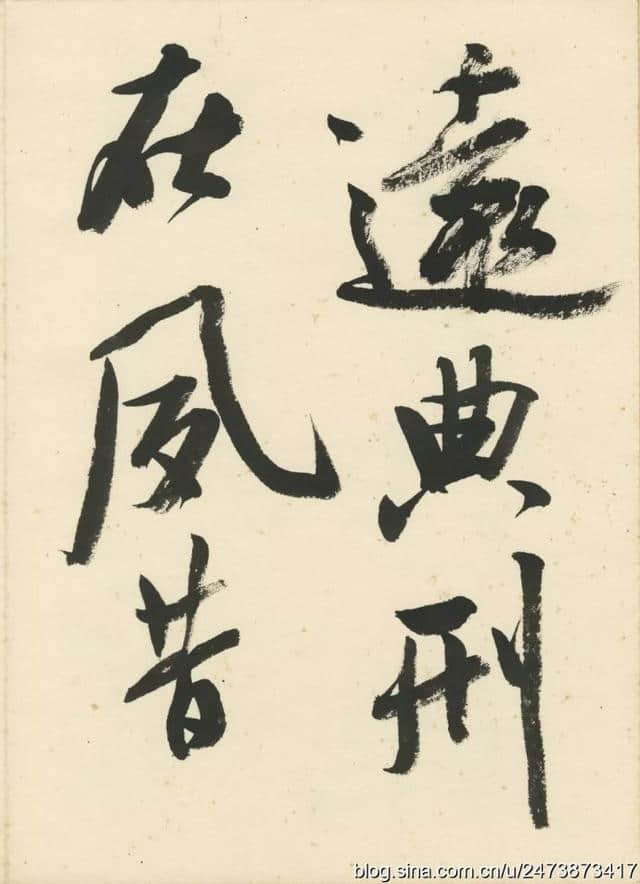 遠典刑
在夙昔
blog.sina.com.cn/u/2473873417